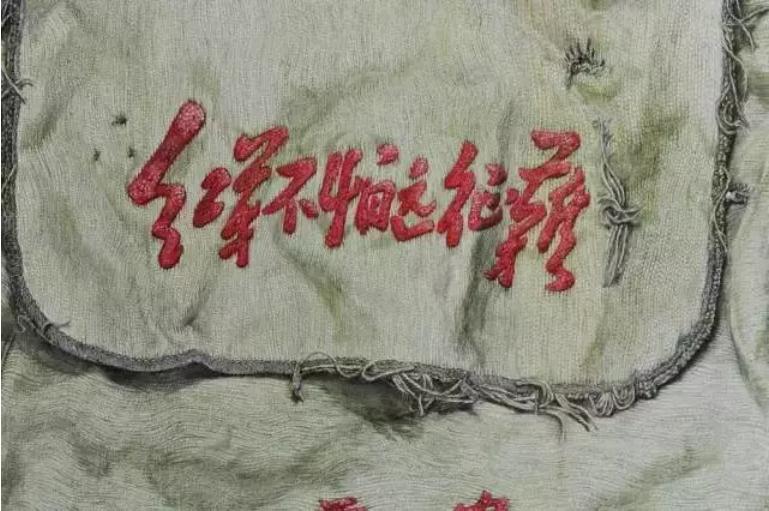 红军不怕远征難